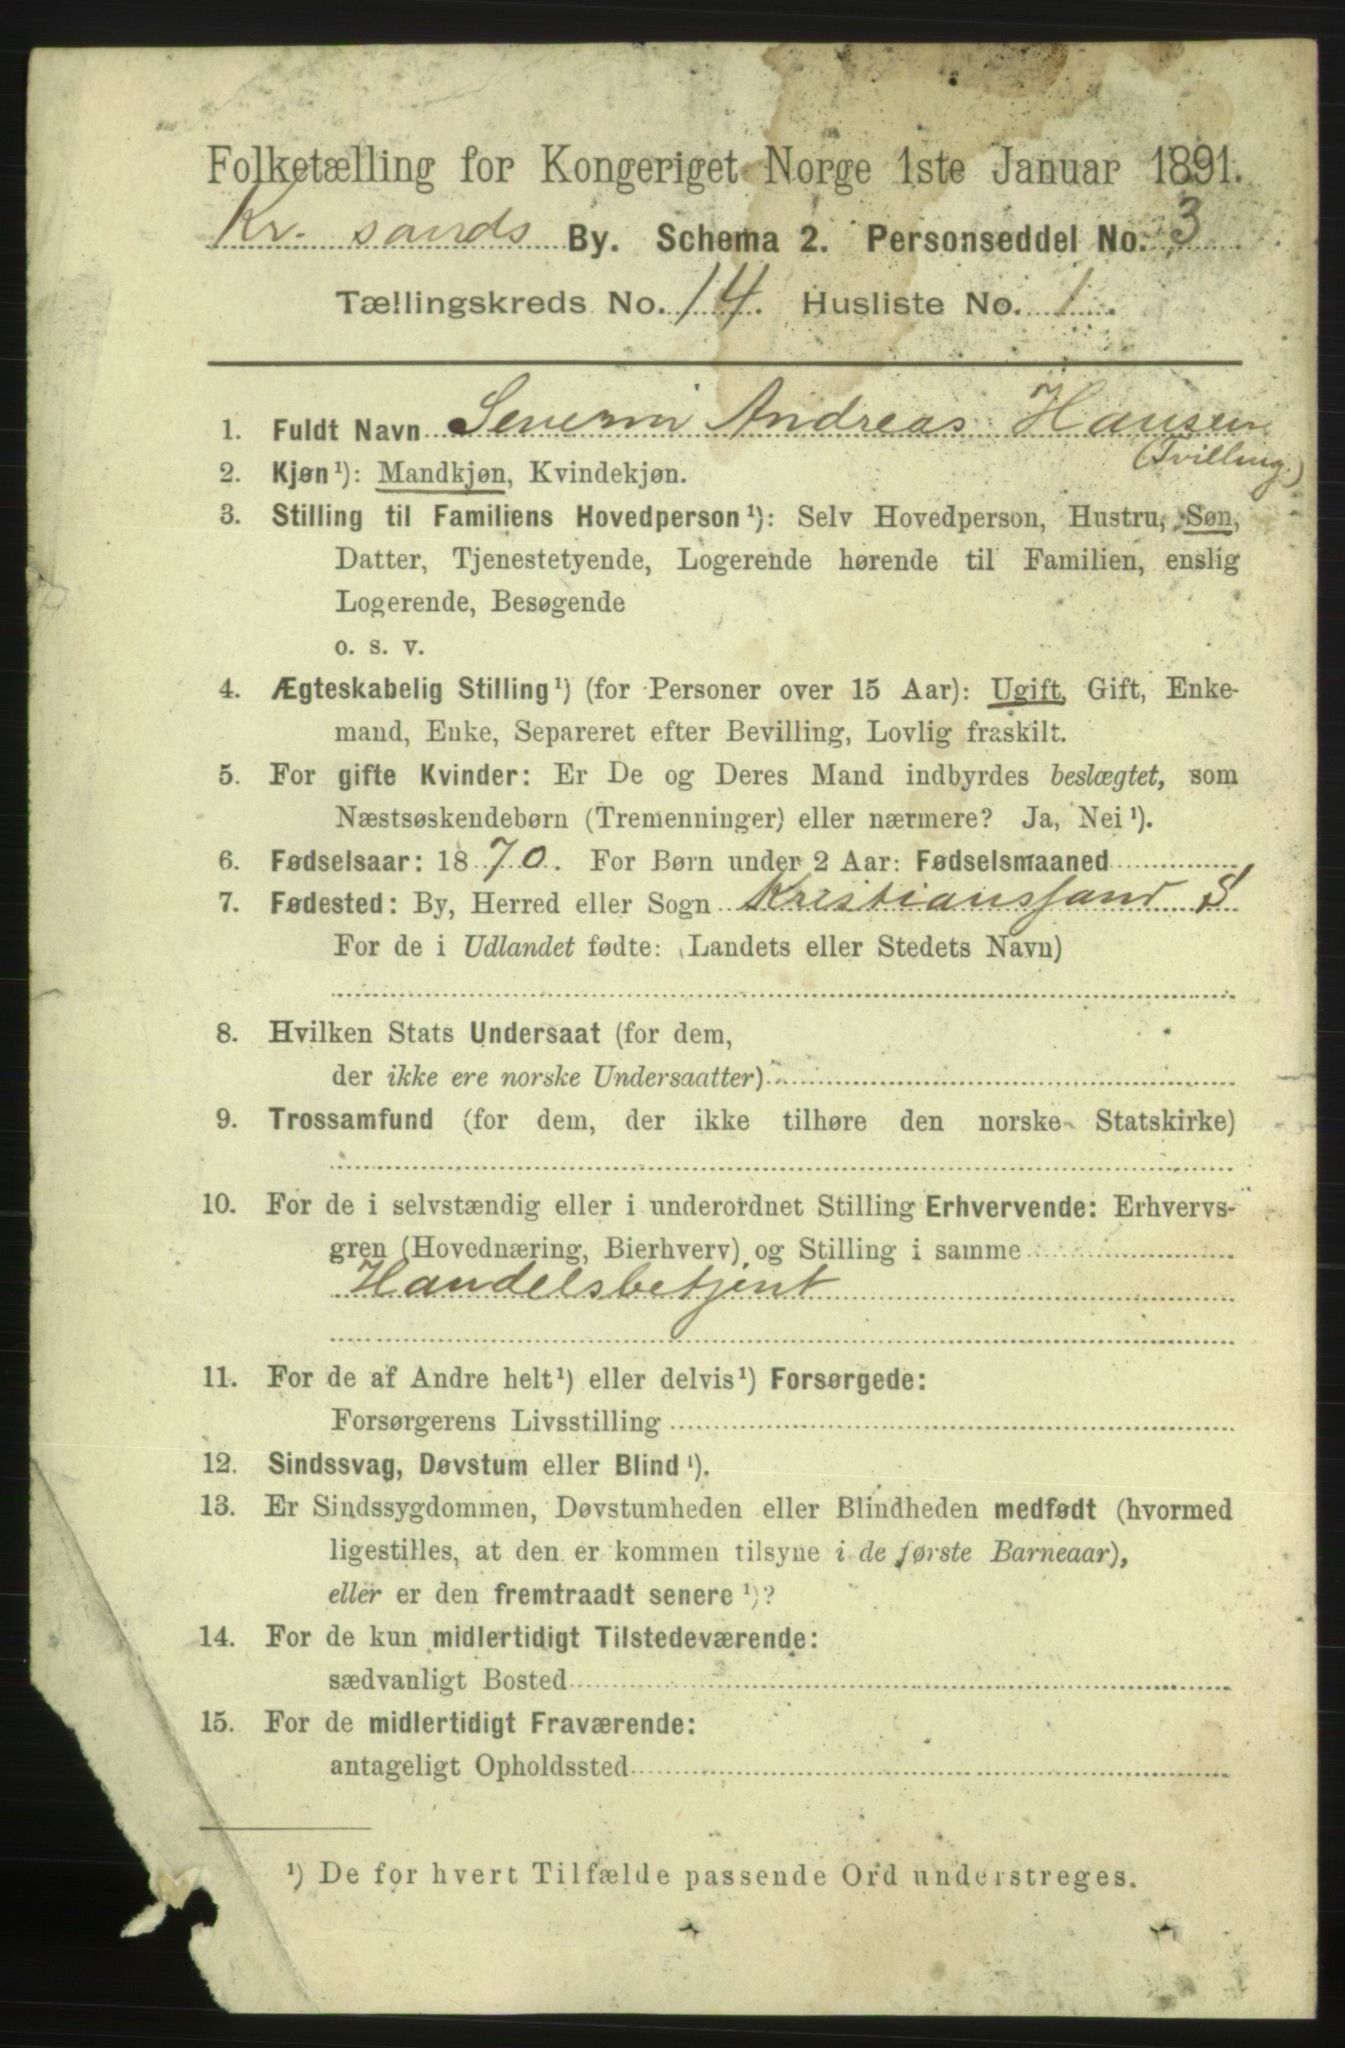 Folketælling for Kongeriget Norge 1ste Januar 1891.
Kr. sands By. Schema 2. Personseddel No. 3
Tællingskreds No. 14. Husliste No. 1.
1. Fuldt Navn Severin Andreas Hansen
(Tvilling)
2. Kjøn¹): Mandkjøn, Kvindekjøn.
3. Stilling til Familiens Hovedperson¹): Selv Hovedperson, Hustru, Søn,
Datter, Tjenestetyende, Logerende hørende til Familien, enslig
Logerende, Besøgende
o. s. v.
4. Ægteskabelig Stilling¹) (for Personer over 15 Aar): Ugift, Gift, Enke-
mand, Enke, Separeret efter Bevilling, Lovlig fraskilt.
5. For gifte Kvinder: Er De og Deres Mand indbyrdes beslægtet, som
Næstsøskendebørn (Tremenninger) eller nærmere? Ja, Nei¹).
6. Fødselsaar: 1870. For Børn under 2 Aar: Fødselsmaaned
7. Fødested: By, Herred eller Sogn Kristianssand S
For de i Udlandet fødte: (Landets eller Stedets Navn)
8. Hvilken Stats Undersaat (for dem,
der ikke ere norske Undersaatter)
9. Trossamfund (for dem, der ikke tilhøre den norske Statskirke)
10. For de i selvstændig eller i underordnet Stilling Erhvervende: Erhvervs-
gren (Hovednæring, Bierhverv) og Stilling i samme
Handelsbetjent
11. For de af Andre helt¹) eller delvis¹) Forsørgede:
Forsørgerens Livsstilling
12. Sindssvag, Døvstum eller Blind¹).
13. Er Sindssygdommen, Døvstumheden eller Blindheden medfødt (hvormed
ligestilles, at den er kommen tilsyne i de første Barneaar),
eller er den fremtraadt senere¹)?
14. For de kun midlertidigt Tilstedeværende:
sædvanligt Bosted
15. For de midlertidigt Fraværende:
antageligt Opholdssted
¹) De for hvert Tilfælde passende Ord understreges.